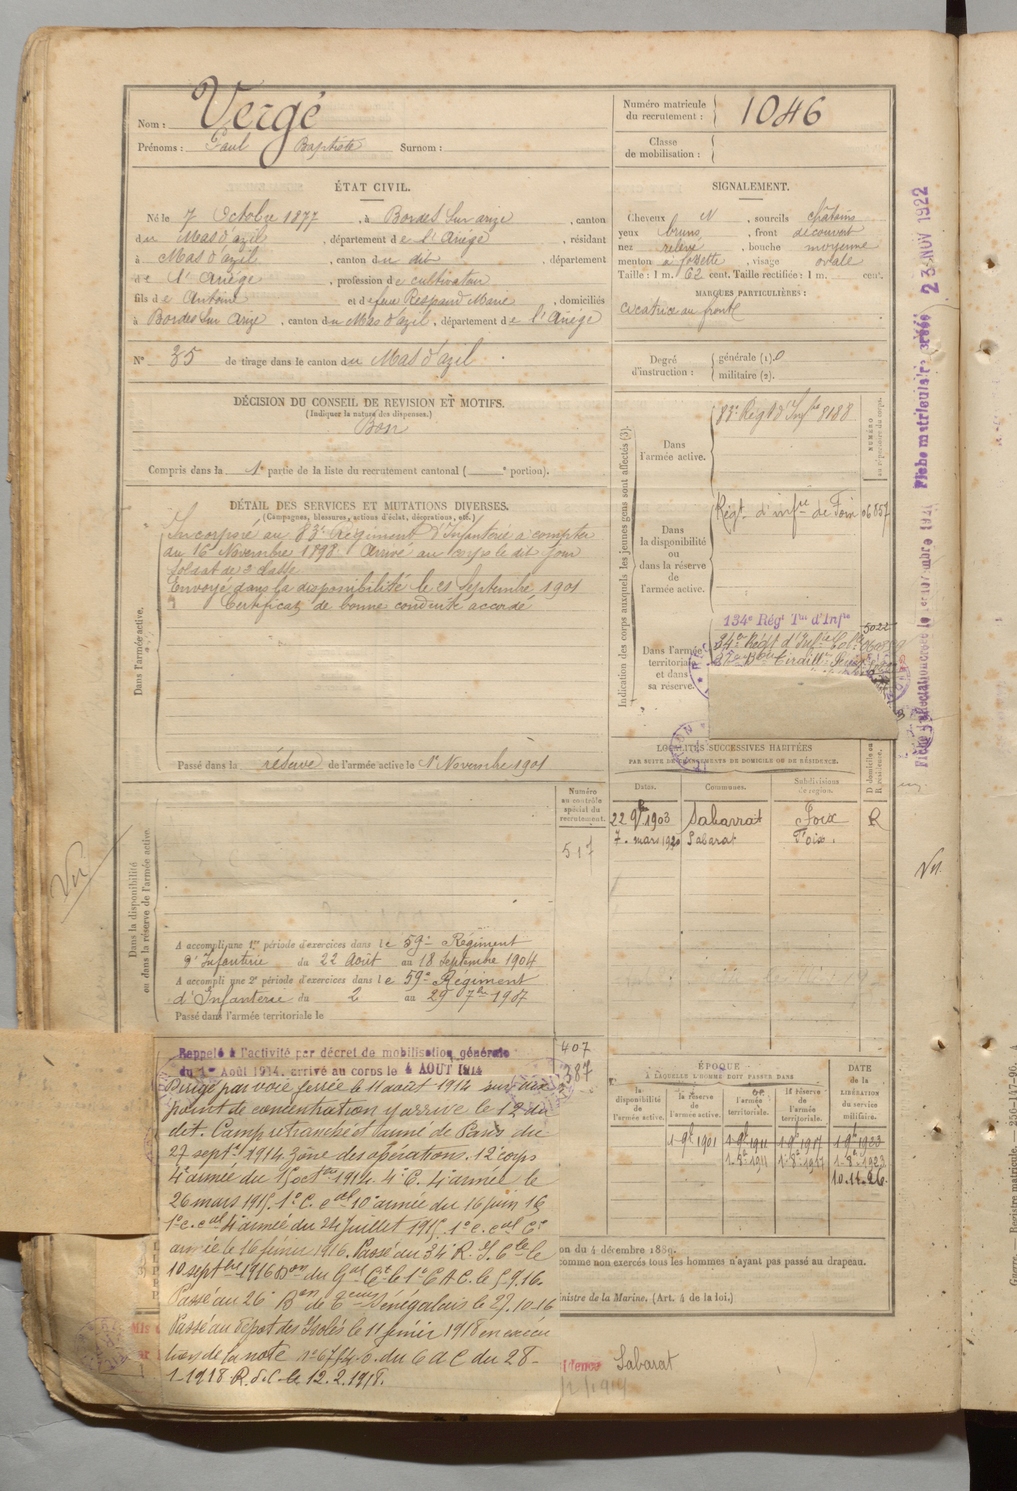 Nom : Vergé
Prénoms : Paul Baptiste Surnom :
Numéro matricule du recrutement : 1046
Classe de mobilisation :
ÉTAT CIVIL.
Né le 7 Octobre 1877, à Bordes sur arize, canton
du Mas d'azil, département de l'Ariège, résidant
à Mas d'azil, canton du dit, département
de l'Ariège, profession de cultivateur
fils de Antoine et de feue Respaud Marie, domiciliés
à Bordes sur Arize, canton du Mas d'azil, département de l'Ariège
N° 35 de tirage dans le canton du Mas d'azil.
SIGNALEMENT.
Cheveux N, sourcils châtains
yeux bruns, front découvert
nez relevé, bouche moyenne
menton à fossette, visage ovale
Taille : 1 m. 62 cent. Taille rectifiée : 1 m. cent.
MARQUES PARTICULIÈRES :
Cicatrice au front
Degré d'instruction : générale (1). 0
militaire (2).
DÉCISION DU CONSEIL DE REVISION ET MOTIFS.
(Indiquer la nature des dispenses.)
Bon
Compris dans la 1e partie de la liste du recrutement cantonal ( e portion).
DÉTAIL DES SERVICES ET MUTATIONS DIVERSES.
(Campagnes, blessures, actions d'éclat, décorations, etc.)
Dans l'armée active.
Incorporé au 83e Régiment d'Infanterie à compter
du 16 Novembre 1898. Arrivé au corps le dit jour
soldat de 2e classe
Envoyé dans la disponibilité le 21 Septembre 1901
Certificat de bonne conduite accordé
Passé dans la réserve de l'armée active le 1er Novembre 1901
Indication des corps auxquels les jeunes gens sont affectés (3).
NUMÉRO au répertoire du corps.
Dans l'armée active.
83e Régt d'Infie 8188
Dans la disponibilité ou dans la réserve de l'armée active.
Régt d'infrie de Foix 06857
Dans l'armée territoriale et dans sa réserve.
134e Régt Tal d'Infie
5022
34e Régt d'Infie Colle
Fiche matriculaire créée 23 NOV 1922
LOCALITÉS SUCCESSIVES HABITÉES
PAR SUITE DE CHANGEMENTS DE DOMICILE OU DE RÉSIDENCE.
Dates. Communes. Subdivisions de région. D domicile ou R résidence.
22 9bre 1903 Sabarrat Foix R
7 mars 1920 Sabarat Foix.
Numéro au contrôle spécial du recrutement.
517
Vu
Vu
Dans la disponibilité ou dans la réserve de l'armée active.
A accompli une 1re période d'exercices dans le 59e Régiment
d'Infanterie du 22 Août au 18 Septembre 1904
A accompli une 2e période d'exercices dans le 59e Régiment
d'Infanterie du 2 au 29 7bre 1907
Passé dans l'armée territoriale le
407
387
Rappelé à l'activité par décret de mobilisation générale
du 1er Août 1914. arrivé au corps le 4 AOUT 1914
Dirigé par voie ferrée le 11 août 1914 sur un
point de concentration y arrive le 12 du
dit. Camp retranché et armé de Paris du
27 sept. 1914. Zone des opérations. 12e corps
4e armée du 15 octbre 1914. 4e C. 4e armée le
26 mars 1915. 1er C. cal 10e armée du 16 juin 15
1er c. cal 4e armée du 24 Juillet 1915. 1er c. cal 6e
armée le 16 février 1916. Passé au 34e R. I. Cle le
10 septbre 1916
Passé au 26e Bon de Teurs Sénégalais le 27.10.16
Passé au dépôt des Isolés le 11 février 1918 en exécu
tion de la note n° du C A C du 28-
1-1918 R.d.C. le 12.2.1918.
ÉPOQUE
A LAQUELLE L'HOMME DOIT PASSER DANS
la disponibilité de l'armée active. la réserve de l'armée active. l'armée territoriale. la réserve de l'armée territoriale.
DATE de la LIBÉRATION du service militaire.
1 9bre 1901 1 9bre 1911 1 9bre 1917 1 9bre 1923
1-8bre 1911 1-8bre 1917 1-8bre 1923
10.11.26
on du 4 décembre 1889.
comme non exercés tous les hommes n'ayant pas passé au drapeau.
nistre de la Marine. (Art. 4 de la loi.)
idence Sabarat